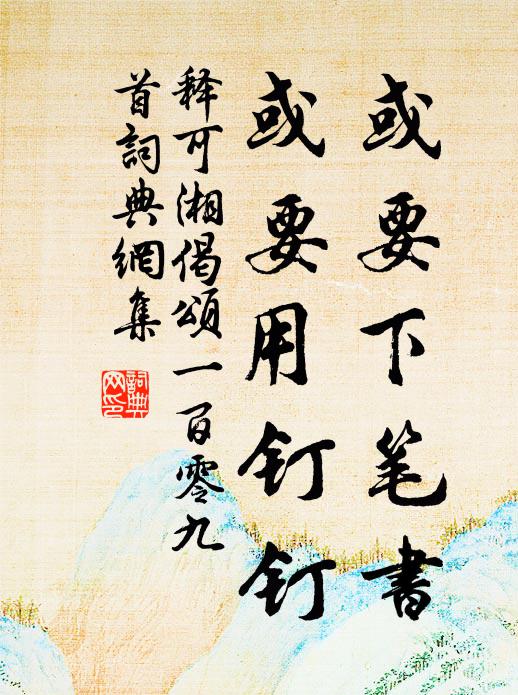 或要下笔書
或要用钉钉
释可湘偈頌一百零九
首詞典網集
詞典
网印